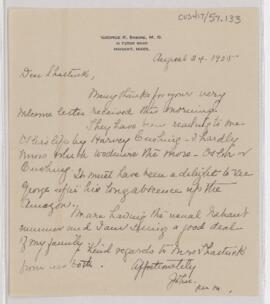 CUSH17/57.133
GEORGE F. SABINE, M. D.
NAHANT, MASS.
August 24. 1925
Dear Shattuck,
Many thanks for your very
welcome letter received this morning.
They have been reading to me
Osler's life by Harvey Cushing - I hardly
know which I admire the more - Osler or
Cushing. It must have been a delight to see
George after his long absence up the
Amazon.
We are having the usual Nahant
summer and I am seeing a good deal
of my family. Kind regards to Mrs Shattuck
from us both. Affectionately
John.